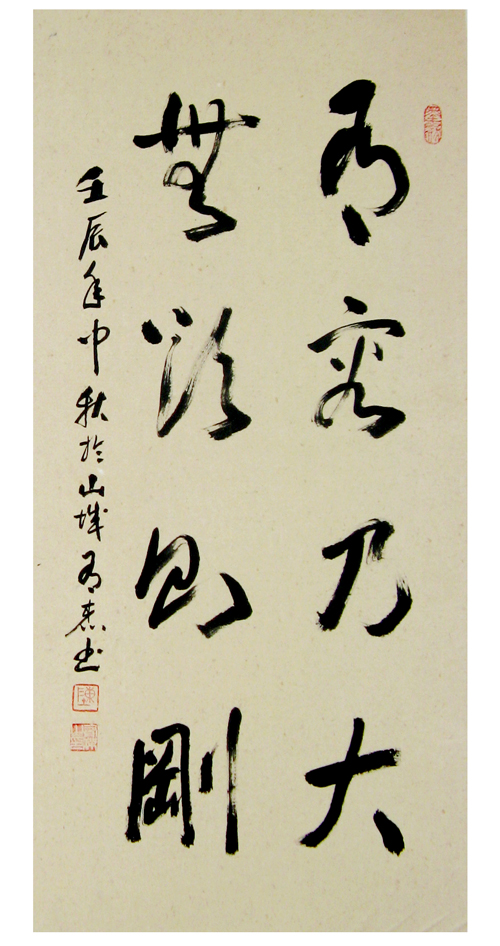 有容乃大
無欲則剛
壬辰年中秋於山城有志书